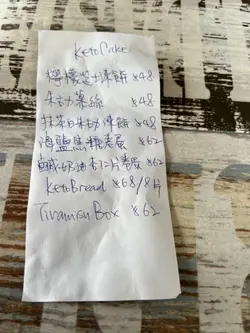 Keto Cake
檸檬芝士凍餅 $48
朱古力慕絲 $48
抹茶白朱古力凍餅 $48
海鹽焦糖卷蛋 $62
鹹奶油杏仁片卷蛋 $62
Keto Bread $68/8片
Tiramisu Box $62